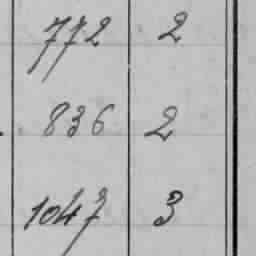 772 2
836 2
1047 3